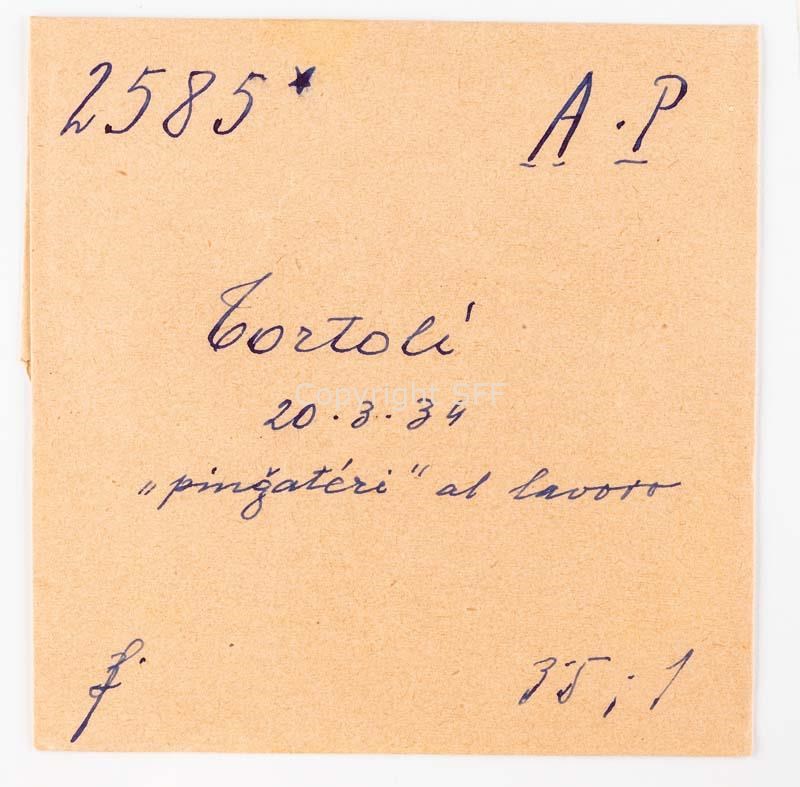 2585* A.P
Tortolí
Copyright SFF
20.3.34
„pinğatéri“ al lavoro
f. 35;1